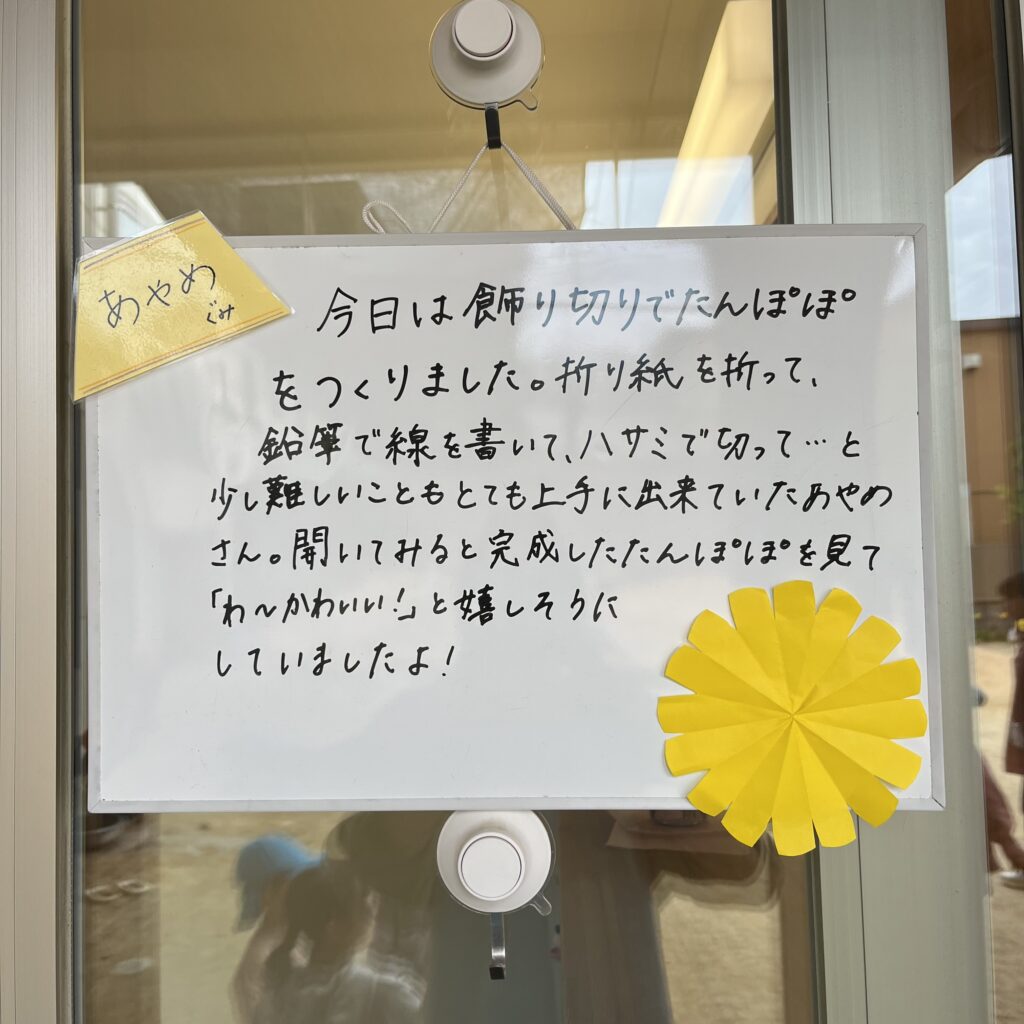 あやめ
ぐみ
今日は飾り切りでたんぽぽ
をつくりました。折り紙を折って、
鉛筆で線を書いて、ハサミで切って…と
少し難しいこともとても上手に出来ていたあやめ
さん。開いてみると完成したたんぽぽを見て
「わ〜かわいい!」と嬉しそうに
していましたよ!